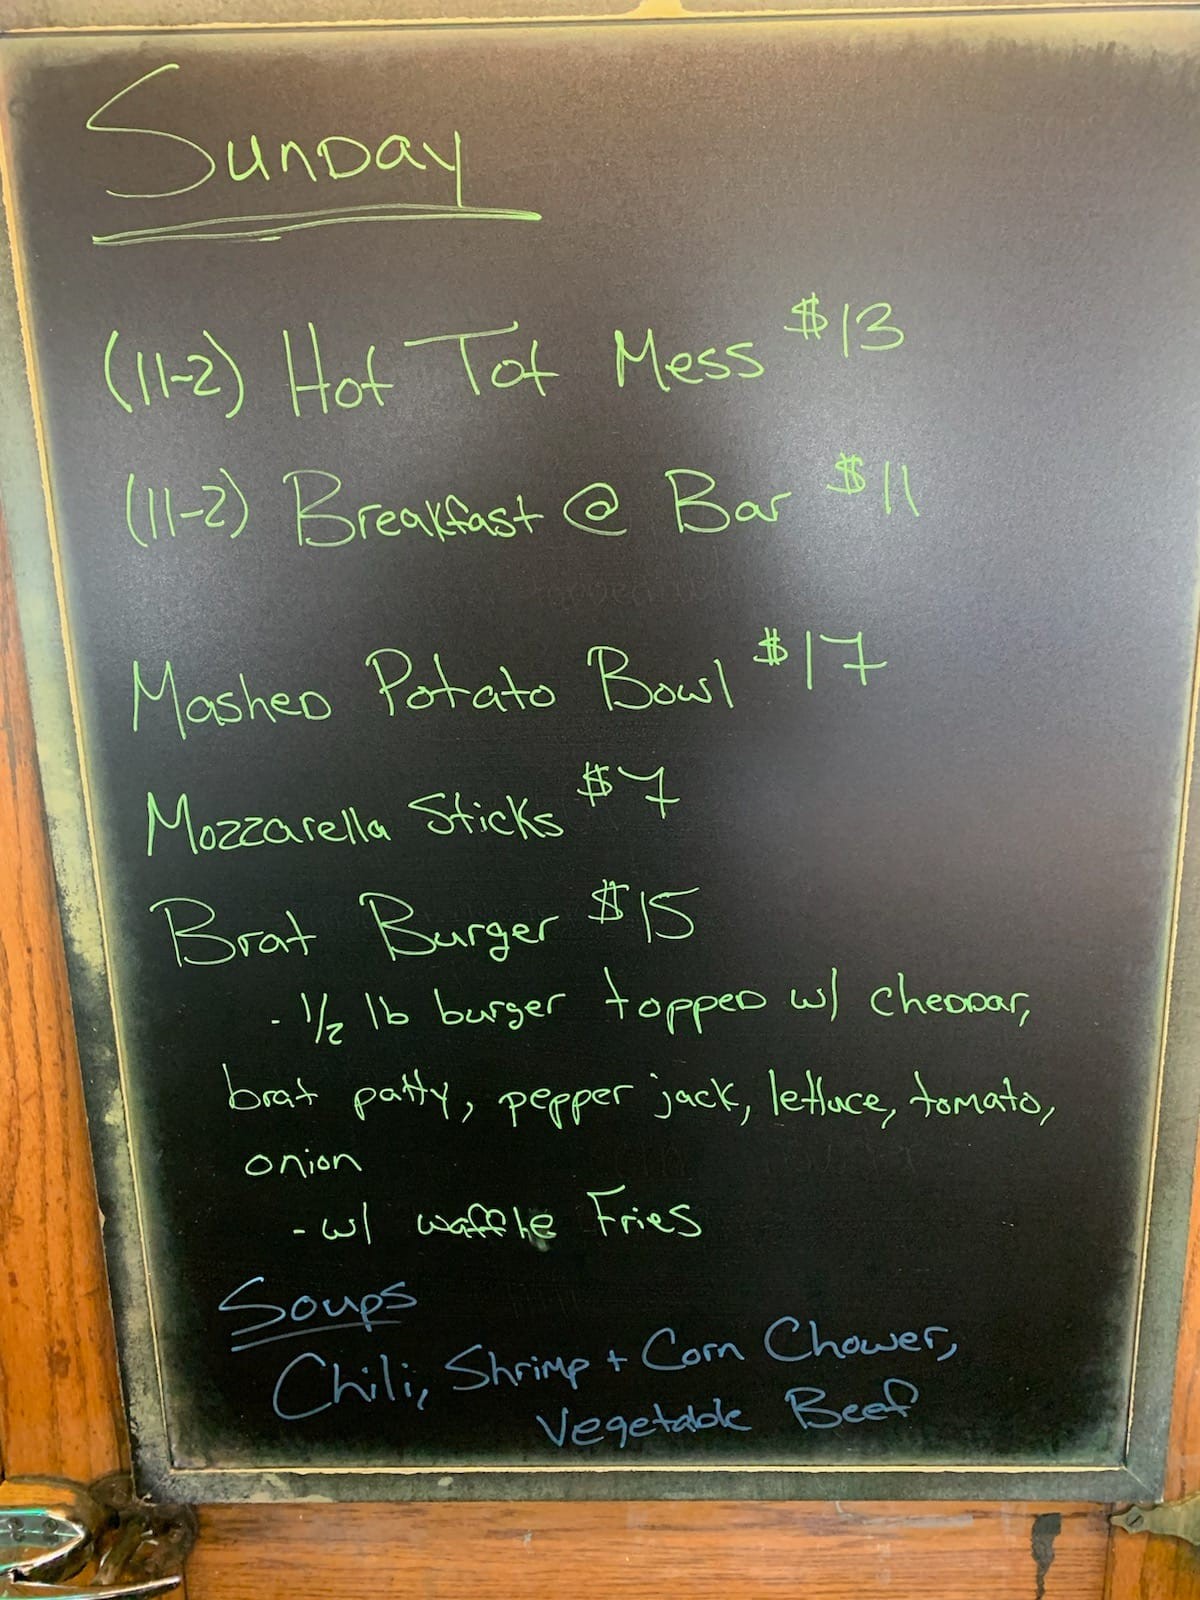 Sunday
(11-2) Hot Tot Mess $13
(11-2) Breakfast @ Bar $11
Mashed Potato Bowl $17
Mozzarella Sticks $7
Brat Burger $15
- 1/2 lb burger topped w/ cheddar,
brat patty, pepper jack, lettuce, tomato,
onion
- w/ waffle Fries
Soups
Chili, Shrimp + Corn Chower,
Vegetable Beef